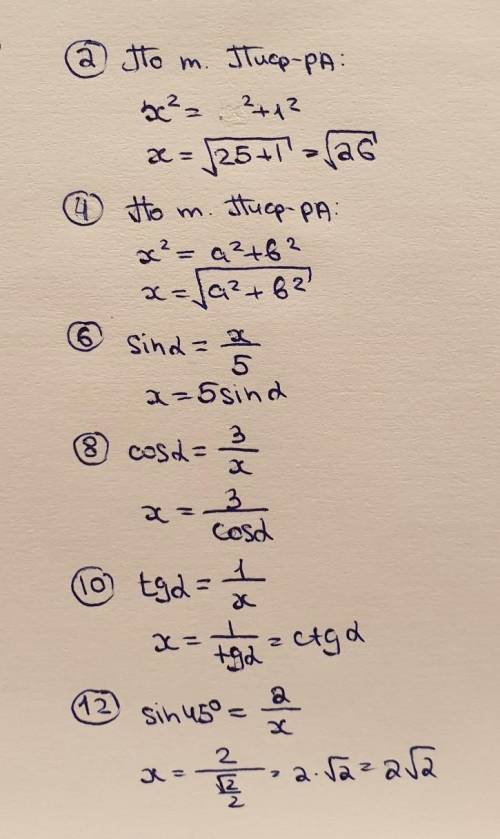 ② По т. Пиф-РА:
x² = ² + 1²
x = √(25+1) = √26
④ По т. Пиф-РА:
x² = a² + b²
x = √(a² + b²)
⑥ sinα = x/5
x = 5sinα
⑧ cosα = 3/x
x = 3/cosα
⑩ tgα = 1/x
x = 1/tgα = ctgα
⑫ sin45° = 2/x
x = 2/(√2/2) = 2·√2 = 2√2